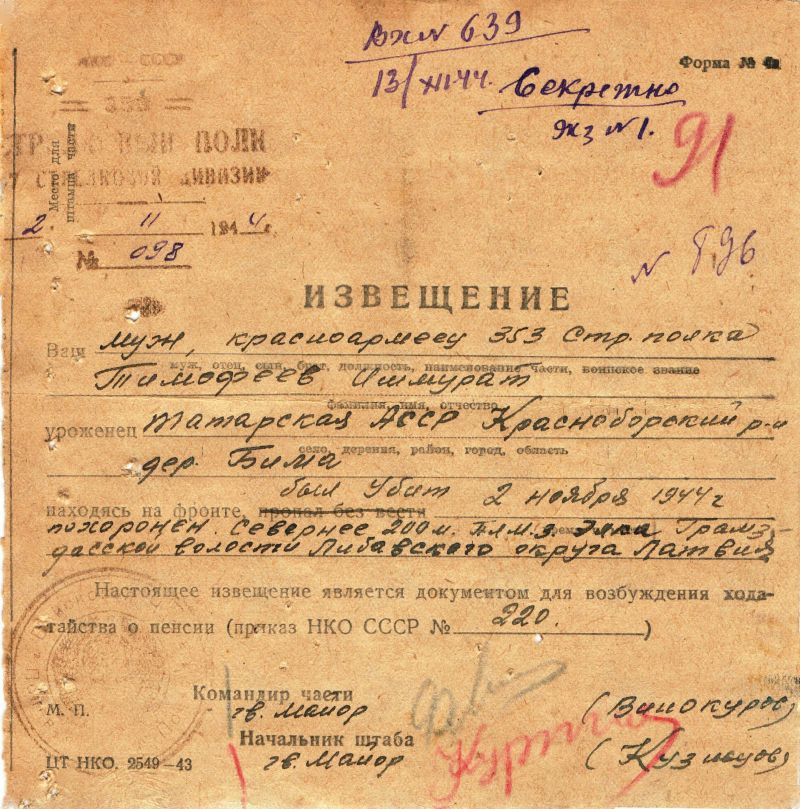 Вх N 639
13/XI 44.
Секретно
экз N 1.
Форма № 4а
91
НКО — СССР
= 353 =
ПОЛК
СТРЕЛКОВОЙ ДИВИЗИИ
Место для
штампа части
2 11 1944 г.
№ 098
N 896
ИЗВЕЩЕНИЕ
Ваш муж, красноармеец 353 Стр. полка
муж, отец, сын, брат, должность, наименование части, воинское звание
Тимофеев Ишмурат
фамилия, имя, отчество
уроженец Татарская АССР Красноборский р-н
село, деревня, район, город, область
дер. Бима
был убит 2 ноября 1944 г
находясь на фронте, пропал без вести
похоронен. Севернее 200 м. Элка Грамз-
дасской волости Либавского округа Латвия
Настоящее извещение является документом для возбуждения хода-
тайства о пенсии (приказ НКО СССР № 220.)
Командир части
гв. Майор (Винокуров)
М. П.
Начальник штаба
гв. Майор (Кузнецов)
ЦТ НКО. 2549—43